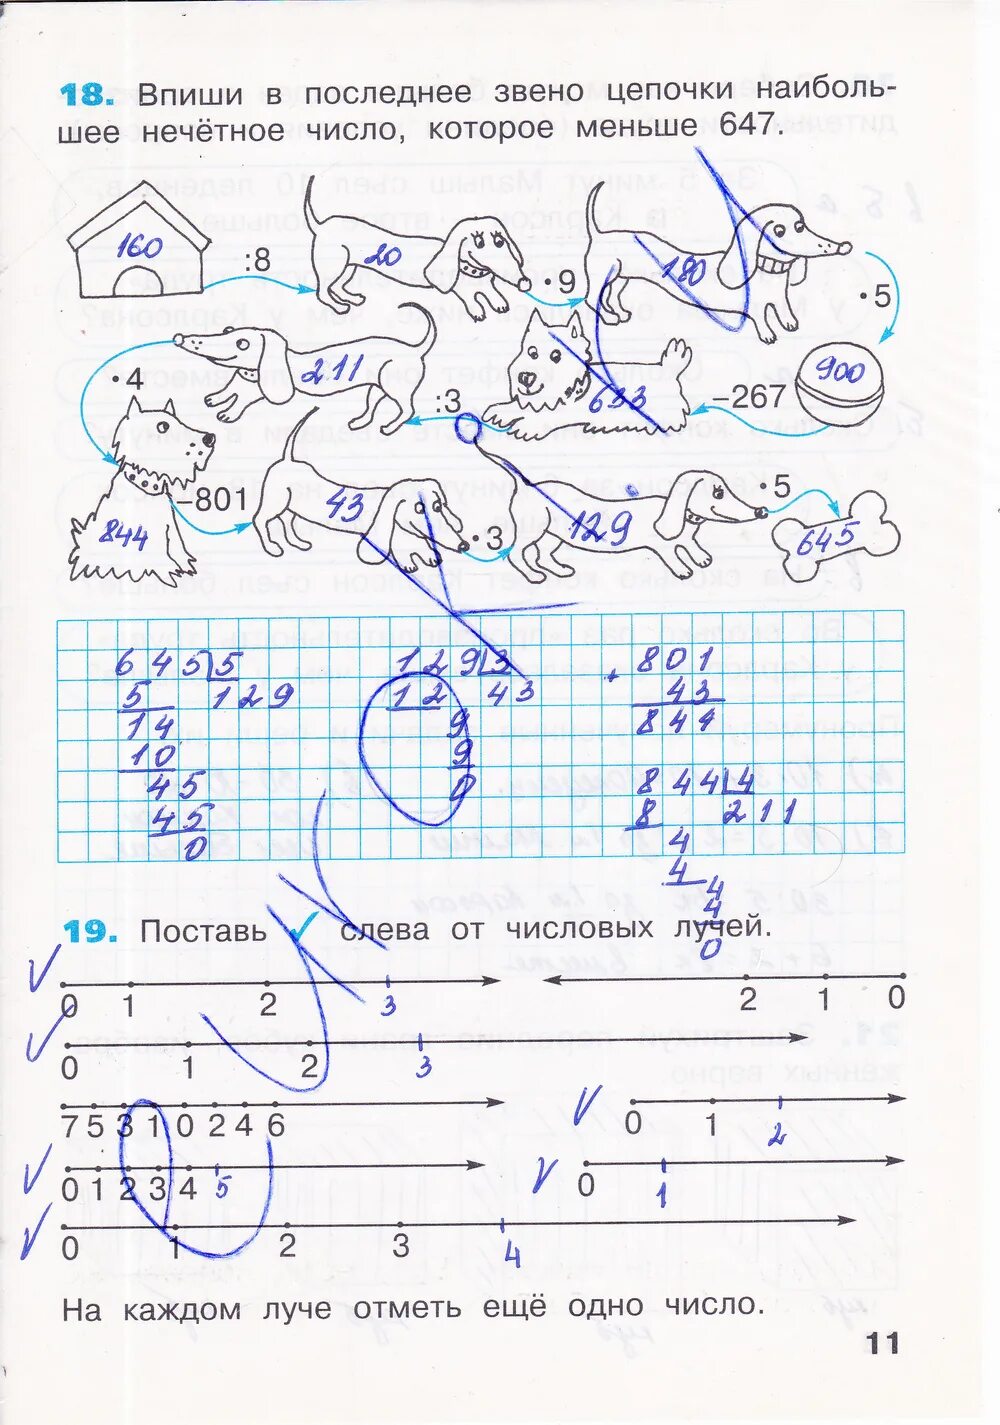 18. Впиши в последнее звено цепочки наиболь-
шее нечётное число, которое меньше 647.
160
:8
20
·9
180
·5
900
-267
633
:3
211
·4
844
-801
43
·3
129
·5
645
645 5
5 129
14
10
45
45
0
129 3
12 43
9
9
0
+ 801
43
844
844 4
8 211
4
4
4
4
0
19. Поставь ✓ слева от числовых лучей.
0 1 2 3
2 1 0
0 1 2 3
7 5 3 1 0 2 4 6
0 1 2
0 1 2 3 4 5
0 1
0 1 2 3 4
На каждом луче отметь ещё одно число.
11